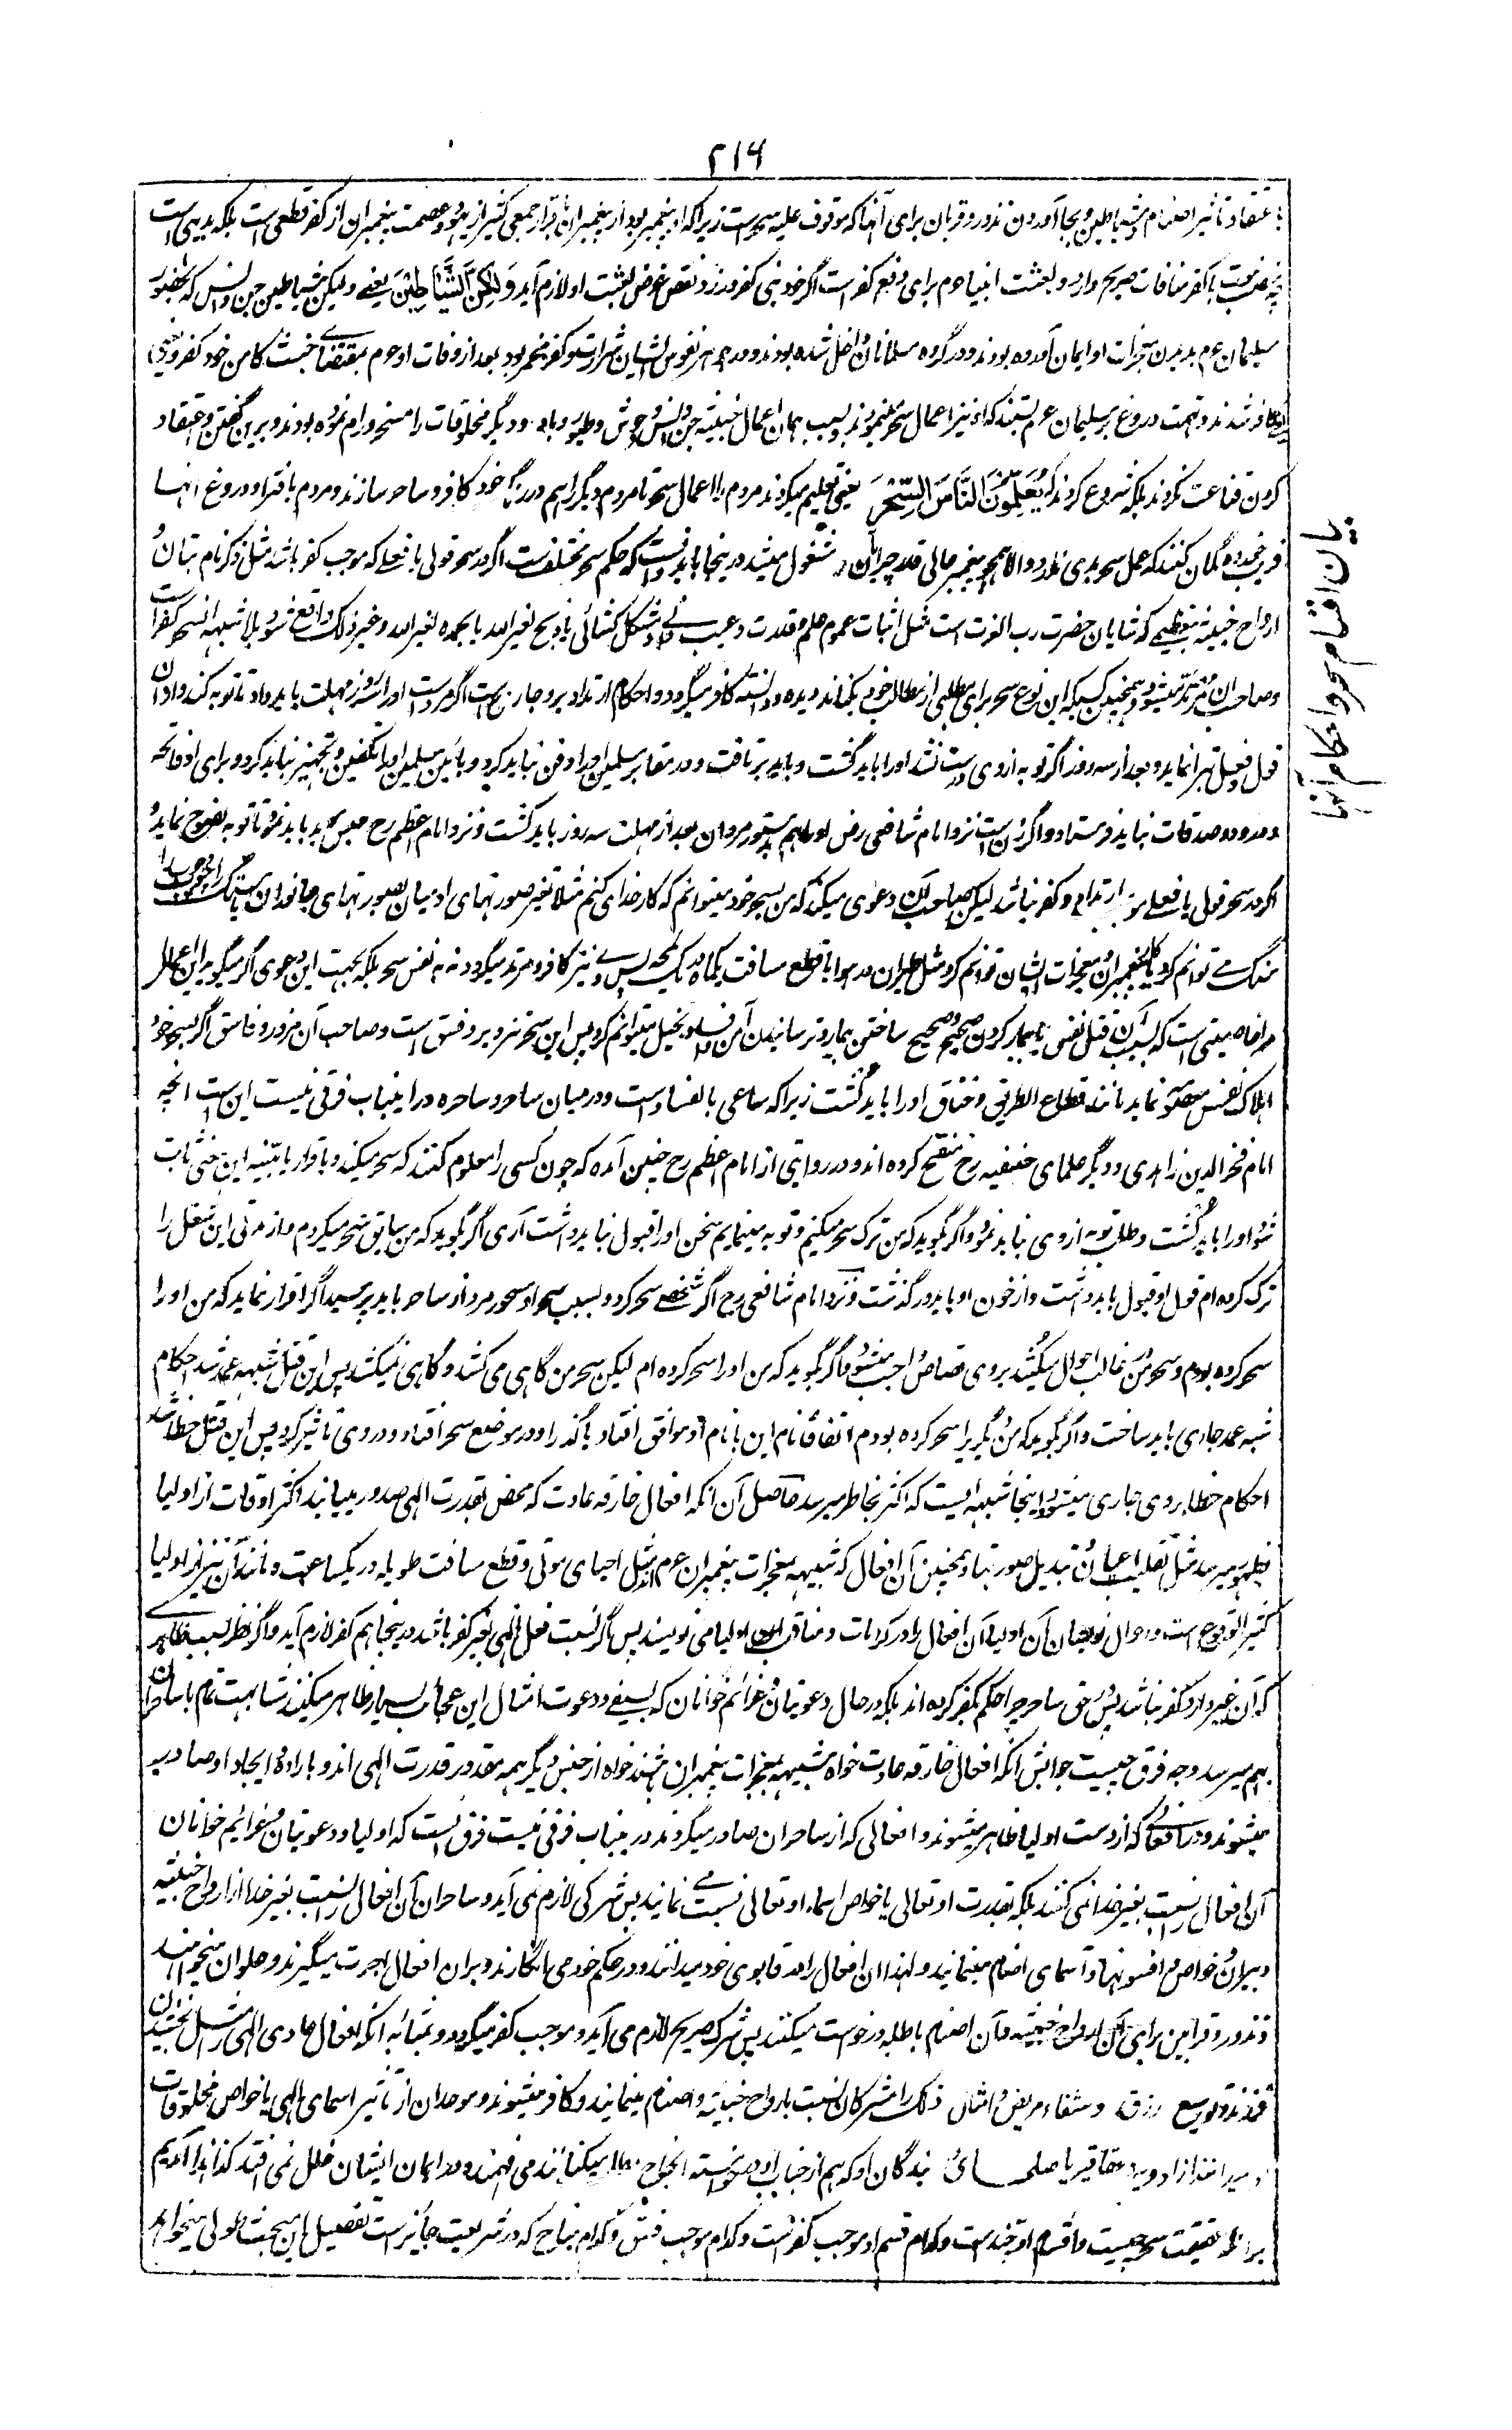 ۲۱۶
باعتقاد تاثیر اصنام و شیاطین و بجا آوردن نذور و قربان برای آنها که موقوف علیه سحر است زیرا که او پیغمبر بود از پیغمبران باقرار جمعی کثیر از یهود و عصمت پیغمبران از کفر قطعی است بلکه بدیهی است
چه منصب نبوت با کفر منافات صریح دارد و بعثت انبیا عم برای رفع کفر است اگر خود نبی کفر ورزد نقض غرض بعثت او لازم آید وَلٰکِنَّ الشَّیَاطِیْنَ یعنی ولیکن شیاطین جن و انس که بحضور
سلیمان عم بدیدن معجزات او ایمان آورده بودند و در گروه مسلمانان داخل شده بودند و در جوهر نفوس ایشان شرارت و کفر مخمر بود بعد از وفات او عم بمقتضای خبث کامن خود کفروا یعنی
کافر شدند و تهمت دروغ بر سلیمان عم بستند که او نیز اعمال سحر مینمود و بسبب همان اعمال خبیثه جن و انس و وحوش و طیور و باد و دیگر مخلوقات را مسخر و رام نموده بودند و برین گفتن و اعتقاد
کردن قناعت نکردند بلکه شروع کردند که یُعَلِّمُوْنَ النَّاسَ السِّحْرَ یعنی تعلیم میکردند مردم را اعمال سحر تا مردم دیگر را هم در رنگ خود کافر و ساحر سازند و مردم بافترا و دروغ آنها
فریب خورده گمان کنند که عمل سحر بدی ندارد و الا همچو پیغمبر عالی قدر چرا بآن مشغول میشد در ینجا باید دانست که حکم سحر مختلف است اگر در سحر قولی یا فعلی که موجب کفر باشد مثل ذکر نام بتان و
ارواح خبیثه بتعظیمی که شایان حضرت رب العزت است مثل اثبات عموم علم و قدرت و غیب دانی و مشکل کشائی یا ذبح لغیر الله یا سجده لغیر الله و غیر ذلک واقع شود بلا شبهه آن سحر کفر است
و صاحب آن مرتد میشود و همچنین کسیکه این نوع سحر برای مطلبی از مطالب خود بکناند دیده و دانسته کافر میگردد و احکام ارتداد برو جاریست اگر مرد است او را سه روز مهلت باید داد تا توبه کند و از آن
قول و فعل تبرا نماید و بعد از سه روز اگر توبه از وی درست نشد او را باید کشت و باید برتافت و در مقابر مسلمین او را دفن نباید کرد و بآئین مسلمین او را تکفین و تجهیز نباید کرد و برای او فاتحه
و درود و صدقات نباید فرستاد و اگر زن است نزد امام شافعی رض او را هم بدستور مردان بعد از مهلت سه روز باید کشت و نزد امام اعظم رح حبس ابد باید نمود تا توبه نصوح نماید و
اگر در سحر قولی یا فعلی موجب ارتداد و کفر نباشد لیکن صاحب آن دعوی میکند که من بسحر خود میتوانم که کار خدائی کنم مثلا تغیر صورتهای آدمیان بصورتهای جانوران یا سنگ را چوب و چوب را
سنگ می توانم کرد یا کار پیغمبران و معجزات ایشان توانم کرد مثل طیران در هوا یا قطع مسافت یکماه در یک لمحه پس وی نیز کافر و مرتد میگردد نه به نفس سحر بلکه بجهت این دعوی اگر میگوید این اعمال
مرا خاصیتی است که بسبب آن قتل نفس یا بیمار کردن صحیح و صحیح ساختن بیمار و ترسانیدن آمن و تخییل میتوانم کرد پس این سحر تزویر و فسق است و صاحب آن مزور و فاسق اگر بسحر خود
اهلاک نفس معصوم نماید مانند قطاع الطریق و خناق او را باید کشت زیرا که ساعی بالفساد است و درمیان ساحر و ساحره در اینباب فرقی نیست این است آنچه
امام فخر الدین زاهدی و دیگر علمای حنفیه رح منقح کرده اند و در روایتی از امام اعظم رح چنین آمده که چون کسی را معلوم کنند که سحر میکند و باقرار یا ببینه این معنی ثابت
شود او را باید کشت و طلب توبه از وی نباید نمود و اگر بگوید که من ترک سحر میکنم و توبه مینمایم سخن او را قبول نباید داشت آری اگر بگوید که من سابق سحر میکردم و از مدتی این شغل را
ترک کرده ام قول او قبول باید داشت و از خون او باید درگذشت و نزد امام شافعی رح اگر شخصی سحر کرد و بسبب سحر او مسحور مرد از ساحر باید پرسید اگر اقرار نماید که من او را
سحر کرده بودم و سحر من غالب احوال میکشد بر وی قصاص واجب میشود و اگر بگوید که من او را سحر کرده ام لیکن سحر من گاهی می کشد و گاهی نمیکشد پس این قتل شبهه عمد شد احکام
شبه عمد جاری باید ساخت و اگر بگوید که من دیگری را سحر کرده بودم اتفاقا نام این با نام او موافق افتاد یا گذر او در موضع سحر افتاد و در وی تاثیر کرد پس این قتل خطا شد
احکام خطا بر وی جاری میشود و اینجا شبهه ایست که اکثر بخاطر میرسد حاصل آن آنکه افعال خارقه عادت که محض بقدرت الهی صدور مییابند اکثر اوقات از اولیا
بظهور میرسد مثل تقلیب اعیان و تبدیل صورتها و همچنین آن افعال که شبیهه بمعجزات پیغمبران عم اند مثل احیای موتی و قطع مسافت طویله در یکساعت و مانند آن نیز از اولیا
کثیر الوقوع است و احوال نویسان آن اولیا آن افعال را در کرامات و مناقب اولیا می نویسند پس اگر نسبت فعل الهی بغیر کفر باشد در ینجا هم کفر لازم آید و اگر نظر بسبب ظاهر
که آن غیر دارد کفر نباشد پس در حق ساحر چرا حکم بکفر کرده اند بلکه در حال دعوتیان و عزائم خوانان که بسیفی و دعوت امثال این عجائب بسیار ظاهر میکنند مشابهت تمام با ساحران
بهم میرسد وجه فرق چیست جوابش آنکه افعال خارقه عادت خواه شبیهه بمعجزات پیغمبران باشند خواه از جنس دیگر همه مقدور قدرت الهی اند و باراده و ایجاد او صادر
میشوند و در افعالی که از دست اولیا ظاهر میشوند و افعالی که از ساحران صادر میگردند در ینباب فرقی نیست فرق اینست که اولیا و دعوتیان و عزائم خوانان
آن افعال را نسبت بغیر خدا نمی کنند بلکه بقدرت او تعالی یا خواص اسماء او تعالی نسبت می نمایند پس شرکی لازم نمی آید و ساحران آن افعال را نسبت بغیر خدا از ارواح خبیثه
و بیران و خواص و افسونها و اسمای اصنام مینمایند و لهذا آن افعال را در قابوی خود میدانند و در حکم خود می انگارند و بران افعال اجرت میگیرند و حلوان میخواهند
و نذور و قرابین برای آن ارواح خبیثه و آن اصنام باطله درخواست میکنند پس شرک صریح لازم می آید و موجب کفر میگردد و بمثابه آنکه افعال عادی الهی را مثل بخشیدن
فرزند و توسیع رزق و شفاء مریض و امثال ذلک را مشرکان نسبت بارواح خبیثه و اصنام مینمایند و کافر میشوند و موحدان از تاثیر اسمای الهی یا خواص مخلوقات
او میدانند از ادویه و عقاقیر یا صلحای بندگان او که هم از جناب او درخواسته انجاح مطالب میکنانند می فهمند و در ایمان ایشان خلل نمی افتد کذا آمدیم
بر آنکه حقیقت سحر چیست و اقسام او چند است و کدام قسم او موجب کفر است و کدام موجب فسق و کدام مباح که در شریعت جائز است تفصیل این مبحث طولی میخواهد
بیان اقسام سحر و احکام آنها